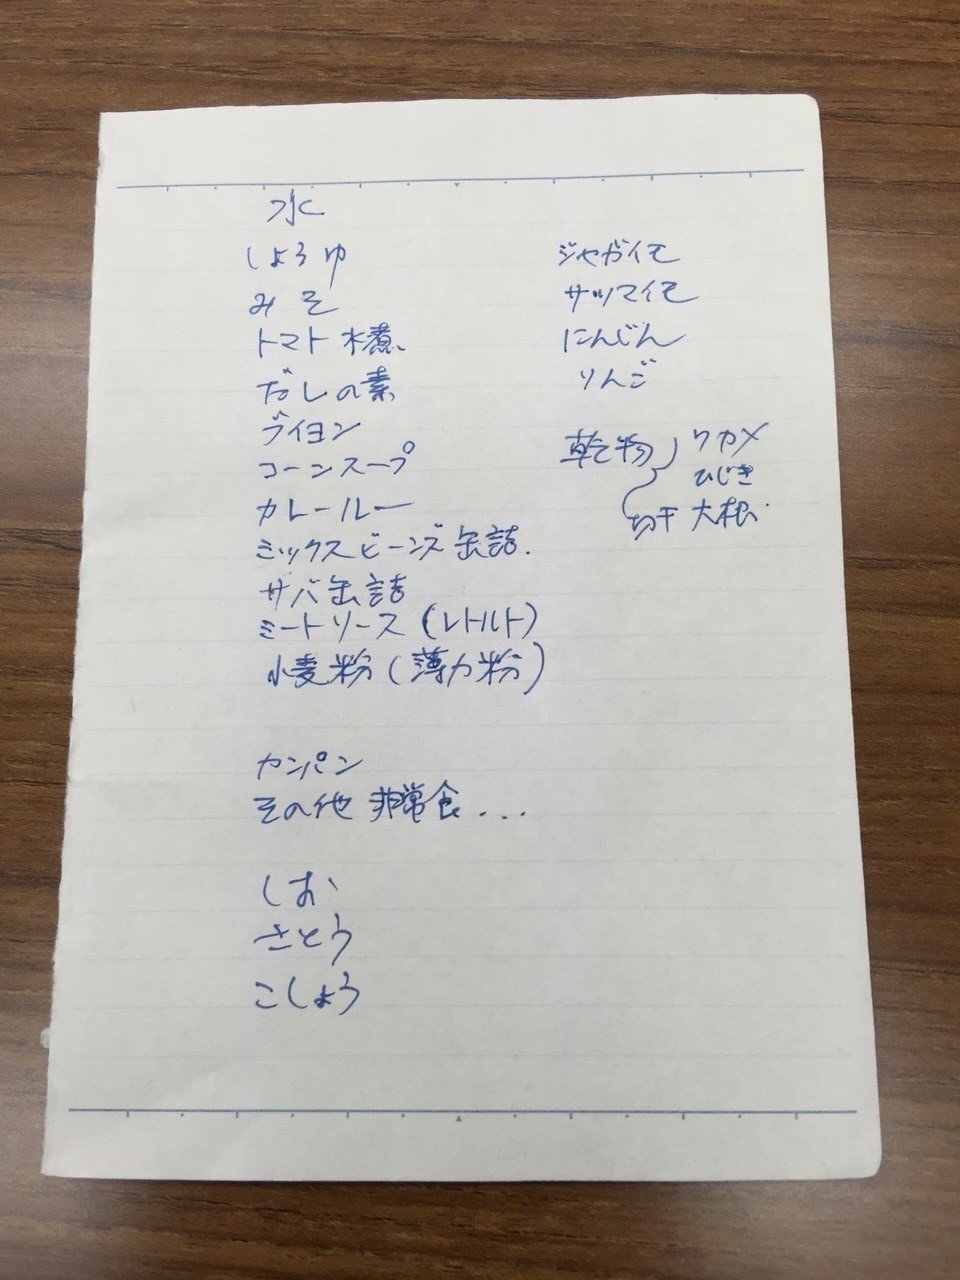 水
しょうゆ
みそ
トマト水煮
だしの素
ブイヨン
コーンスープ
カレールー
ミックスビーンズ缶詰.
サバ缶詰
ミートソース(レトルト)
小麦粉(薄力粉)
カンパン
その他 非常食...
しお
さとう
こしょう
ジャガイモ
サツマイモ
にんじん
りんご
乾物 ワカメ
ひじき
切干大根